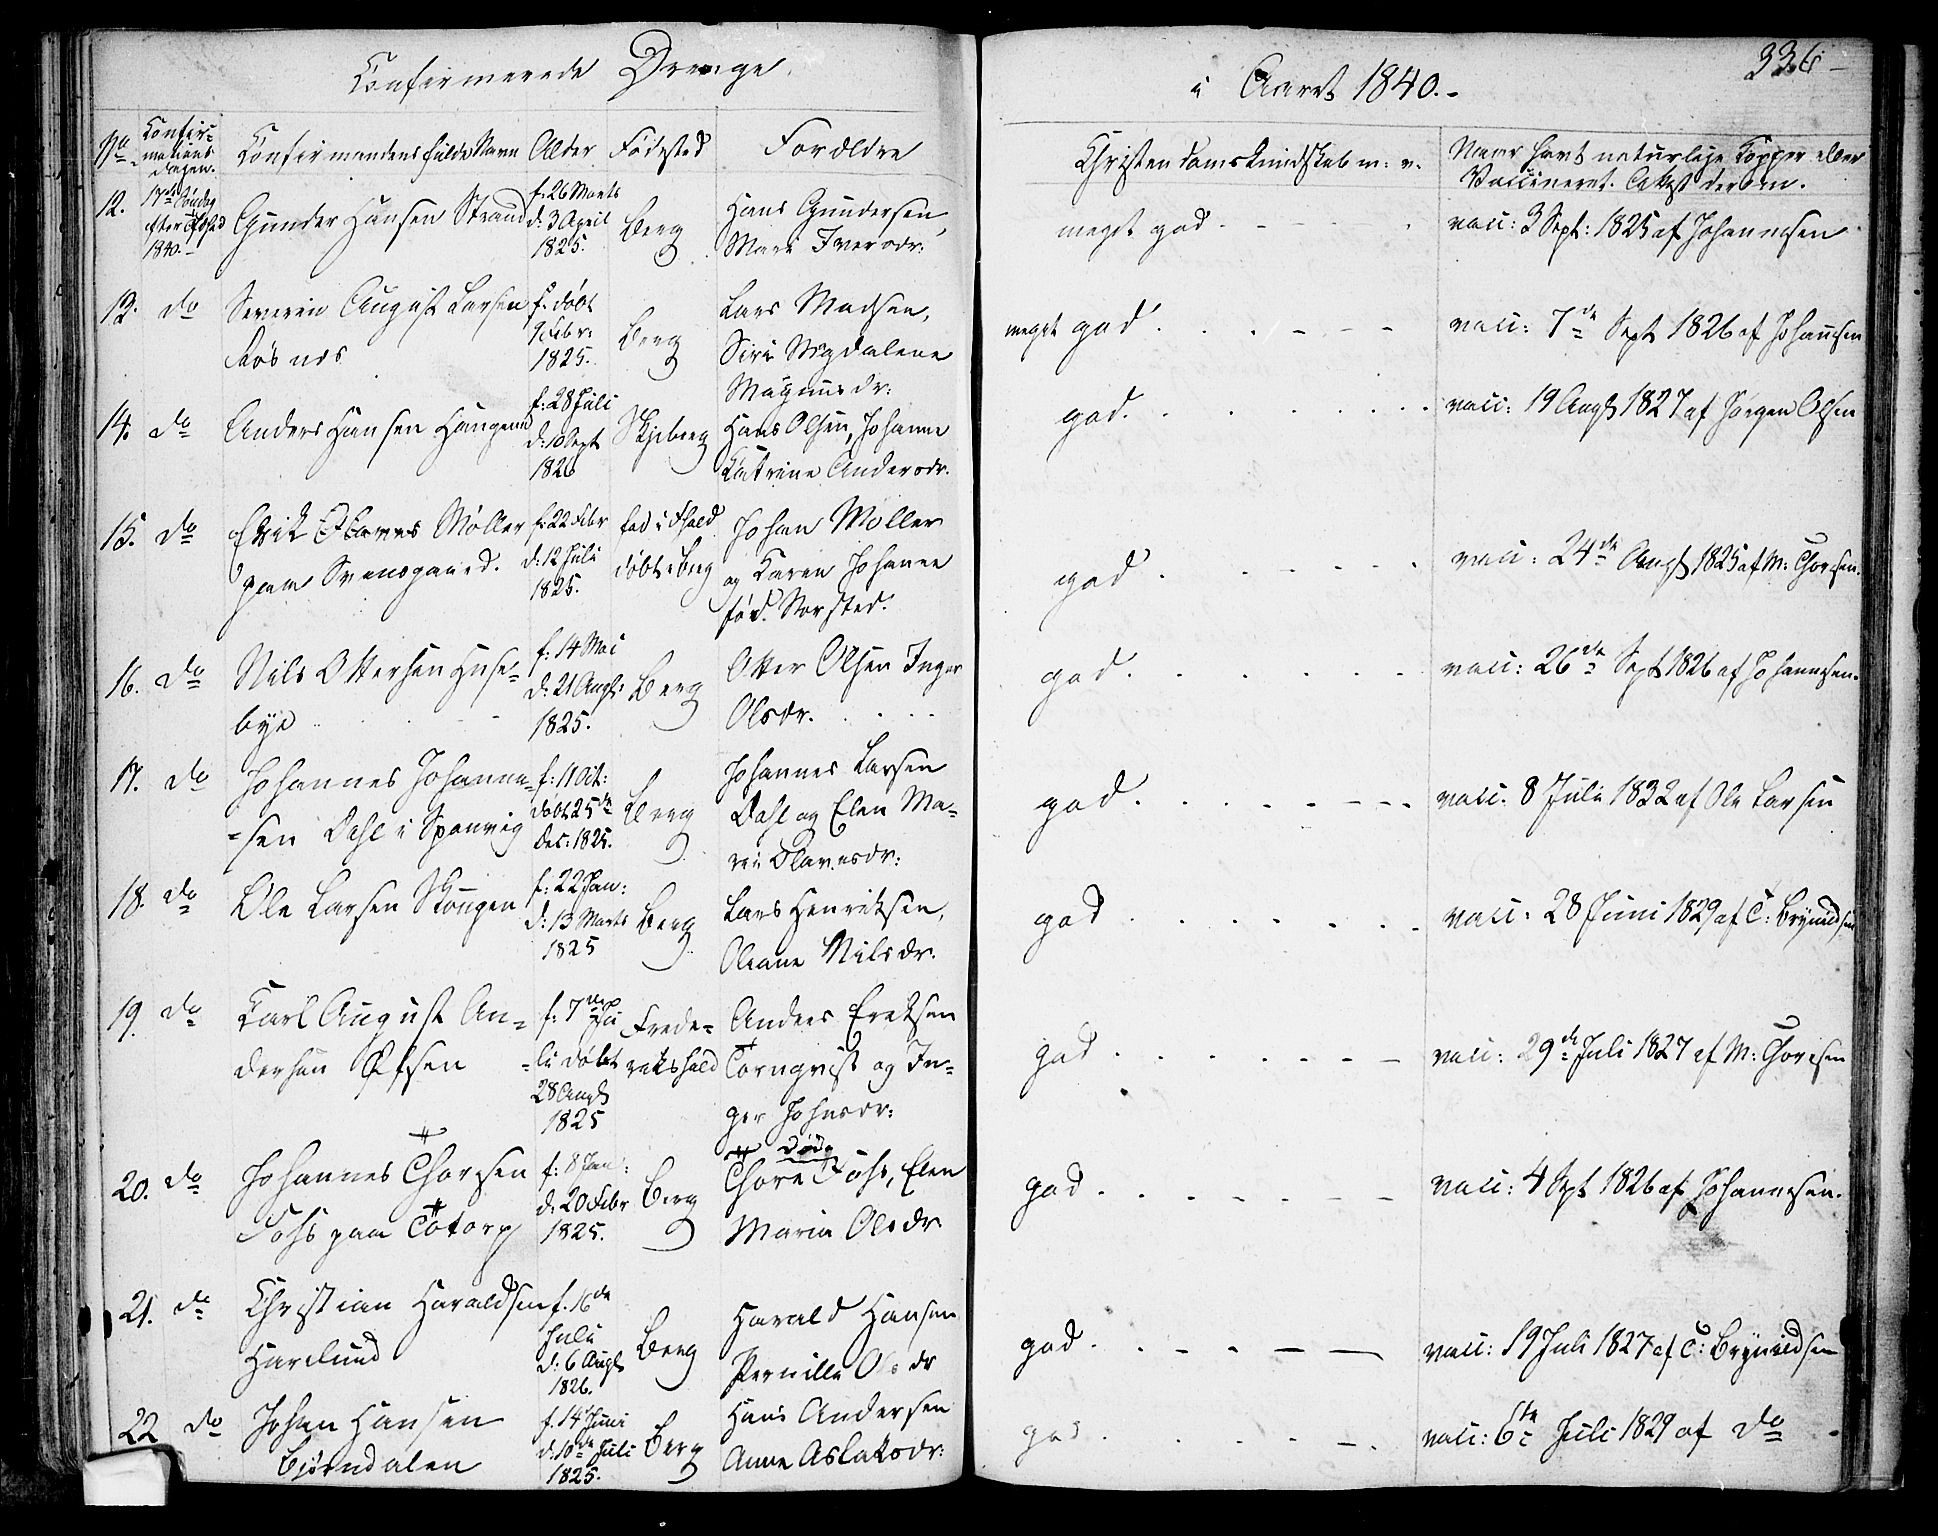 Confirmerede Drenge
i Aaret 1840.-
336
No Confir-
mations
dagen. Confirmandens fulde Navn Alder Fødested Forældre Christendomskundskab m: v. Naar havt naturlige Kopper eller
Vaccineret. Attest derom.
12. 17de Søndag
efter
1840.- Gunder Hansen Strand f: 26 Marts
d: 3 April
1825. Berg Hans Gundersen,
Mari Iversdr: meget god vacc: 3 Sept: 1825 af Johannesen
13. do Severin August Larsen
døbt
9 Febr:
1825. Berg Lars Madsen,
Siri Magdalene
Magnusdr: meget god vacc: 7de Sept 1826 af Johannesen
14. do Anders Hansen Haugene f: 28 Juli
d: 10 Sept
1826 Skjeberg Hans Olsen, Johanne
Katrine Andersdr. god. vacc: 19 Augt 1827 af Jørgen Olsen
15. do Erik Møller
paa Svensgaard. f: 22 Febr
d: 12 Juli
1825. fød i Fhald
døbt i Berg Johan Møller
og Karen Johanne
fød. Norsted. god vacc: 24de Augt 1825 af M: Thoresen.
16. do Nils Ottersen Huse-
bye f: 14 Mai
d: 21 Augt:
1825. Berg Otter Olsen Inger
Olsdr. god vacc: 26de Sept 1826 af Johannesen.
17. do Johannes Johanne-
-sen Dahl i Sponvig f: 11 Oct:
døbt 25de
Dec: 1825. Berg Johannes Larsen
Dahl og Elen Ma-
rie Olavesdr: god vacc: 8 Juli 1832 af Ole Larsen
18. do Ole Larsen Skougen f: 22 Jan:
d: 13 Marts
1825 Berg Lars Henriksen,
Oleane Nilsdr. god vacc: 28 Juni 1829 af C: Brynildsen
19. do Carl August An-
dersen Øfsen f: 7de Ju
-li døbt
28 Augt
1825 Frede-
rikshald Anders Ereksen
Tornqvist og In-
ger Johnsdr: god vacc: 29de Juli 1827 af M: Thoresen
20. do Johannes Thoresen
Fohs paa Totorp f: 8 Jan:
d: 20 Febr
1825. Berg død
Thore Fohs, Elen
Maria Olsdr god vacc: 4 Sept 1826 af Johannesen.
21. do Christian Haraldsen
Harelund f. 16de
Juli
d: 6 Augt
1826. Berg Harald Hansen
Pernille Olsdr god vacc: 19 Juli 1827 af C: Brynildsen
22 do Johan Hansen
Bjørndalen f. 14 Juni
d. 10de Juli
1825. Berg Hans Andersen
Anne Aslaksdr: god vacc: 6te Juli 1829 af do